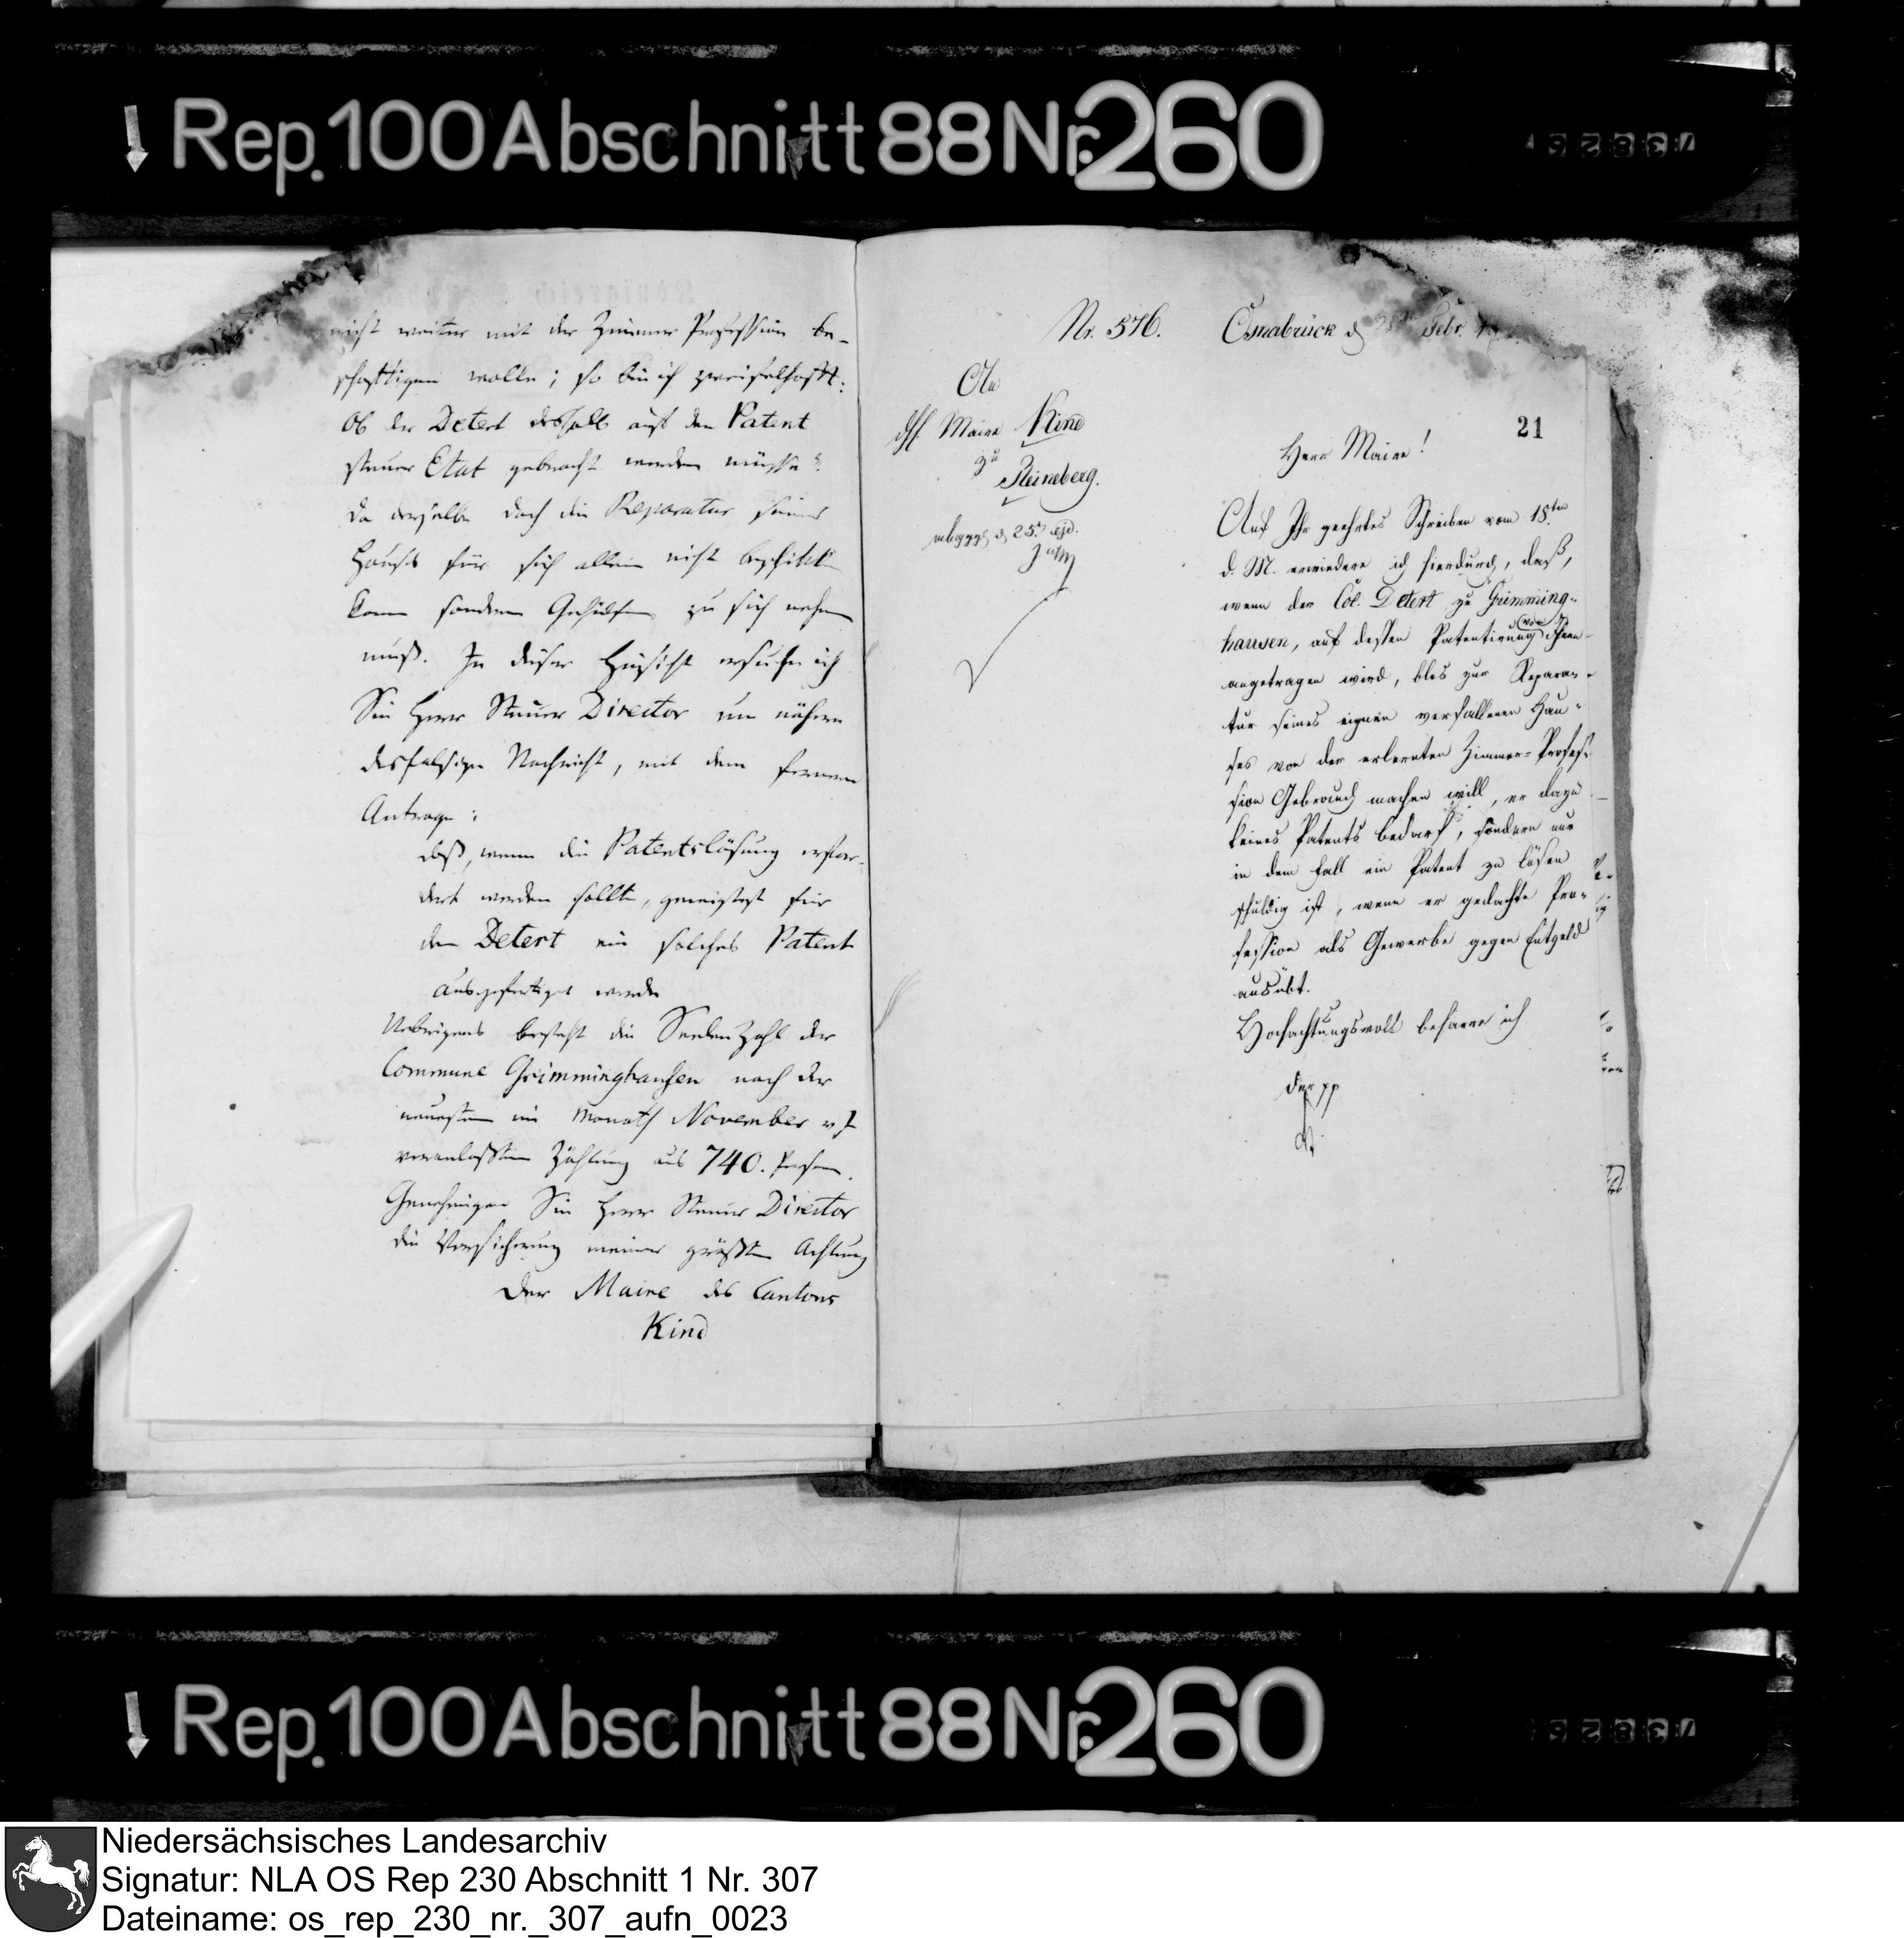 Rep. 100 Abschnitt 88 Nr. 260
nicht weiter mit der Zimmer Profession be-
schäftigen wolle; so bin ich zweifelhaft:
Ob der Detert deshalb auf den Patent
steuer Etat gebracht werden müsse?
da derselbe doch die Reparatur seines
Hauses für sich allein nicht beschicken
kann sondern Gehülfen zu sich nehmen
muß. In dieser Hinsicht ersuche ich
Sie Herr Steuer Director um nähere
desfalsige Nachricht, mit dem fernern
Antrage:
daß, wenn die Patentslösung erfor-
dert werden sollte, geneigtest für
den Detert ein solches Patent
ausgefertiget werde
Uebrigens besteht die Seelen Zahl der
Commune Grimminghausen nach der
neuesten im Monath November v. J.
veranlaßten Zählung aus 740. Persen.
Genehmigen Sie Herr Steuer Director
die Versicherung meiner größten Achtung
Der Maire des Cantons
Kind
Nr. 576.
Osnabrück d Febr.
21
An
Maire Kind
zu
Steineberg.
25 ejd.
Herr Maire!
Auf Ihr geehrtes Schreiben vom 18ten
d. M. erwiedere ich hierdurch, daß,
wenn der Col. Detert zu Grimming-
hausen, auf dessen Patentirung von Ihnen
angetragen wird, blos zur Repara-
tur seines eignen verfallenen Hau-
ses von der erlernten Zimmer-Profes-
sion Gebrauch machen will, er dazu
keines Patents bedarf, sondern nur
in dem Fall ein Patent zu lösen
schuldig ist, wenn er gedachte Pro-
fession als Gewerbe gegen Entgeld
ausübt.
Hochachtungsvoll beharre ich
Der pp
Rep. 100 Abschnitt 88 Nr. 260
Niedersächsisches Landesarchiv
Signatur: NLA OS Rep 230 Abschnitt 1 Nr. 307
Dateiname: os_rep_230_nr._307_aufn_0023